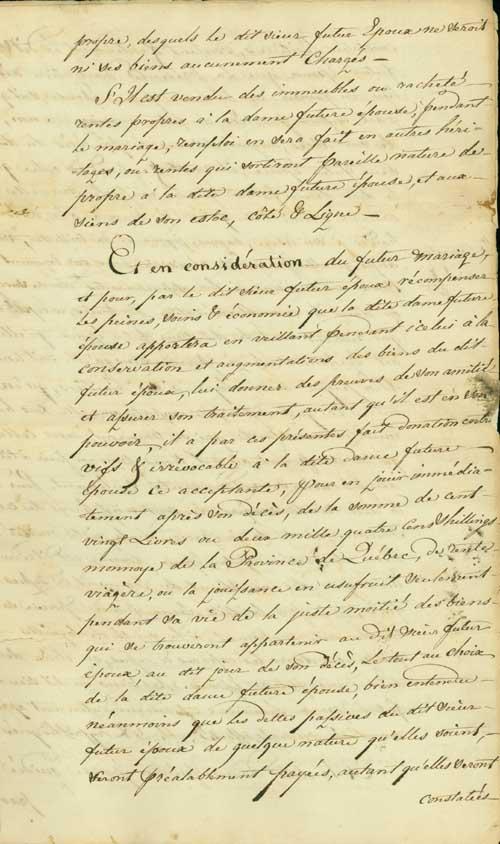 propre, desquels le dit sieur futur Epoux ne seroit
ni ses biens aucunement Chargés —
S'il est vendu des immeubles ou racheté
rentes propres à la dame future épouse, pendant
le mariage, remploi en sera fait en autres héri-
tages, ou rentes qui sortiront pareille nature de
propre à la dite dame future épouse, et aux
siens de son estoc, côté & Ligne —
Et en considération du futur mariage,
et pour, par le dit sieur futur époux récompenser
les peines, soins & économie que la dite dame future
épouse apportera en veillant pendant icelui à la
conservation et augmentations des biens du dit
futur époux, lui donner des preuves de son amitié
et assurer son traitement, autant qu'il est en son
pouvoir, il a par ces présentes fait donation entre
vifs & irrévocable à la dite dame future
Epouse ce acceptante, pour en jouir immédia-
tement après son décès, de la somme de cent
vingt Livres ou deux mille quatre Cens Shillings
monnoye de la Province de Québec, de rente
viagère, ou la jouissance en usufruit seulement
pendant sa vie de la juste moitié des biens
qui se trouveront appartenir au dit sieur futur
époux, au dit jour de son décès, Le tout au choix
de la dite dame future épouse, bien entendu
néanmoins que les dettes passives du dit sieur
futur époux de quelque nature qu'elles soient,
seront préalablement payées, autant qu'elles seront
constatées —